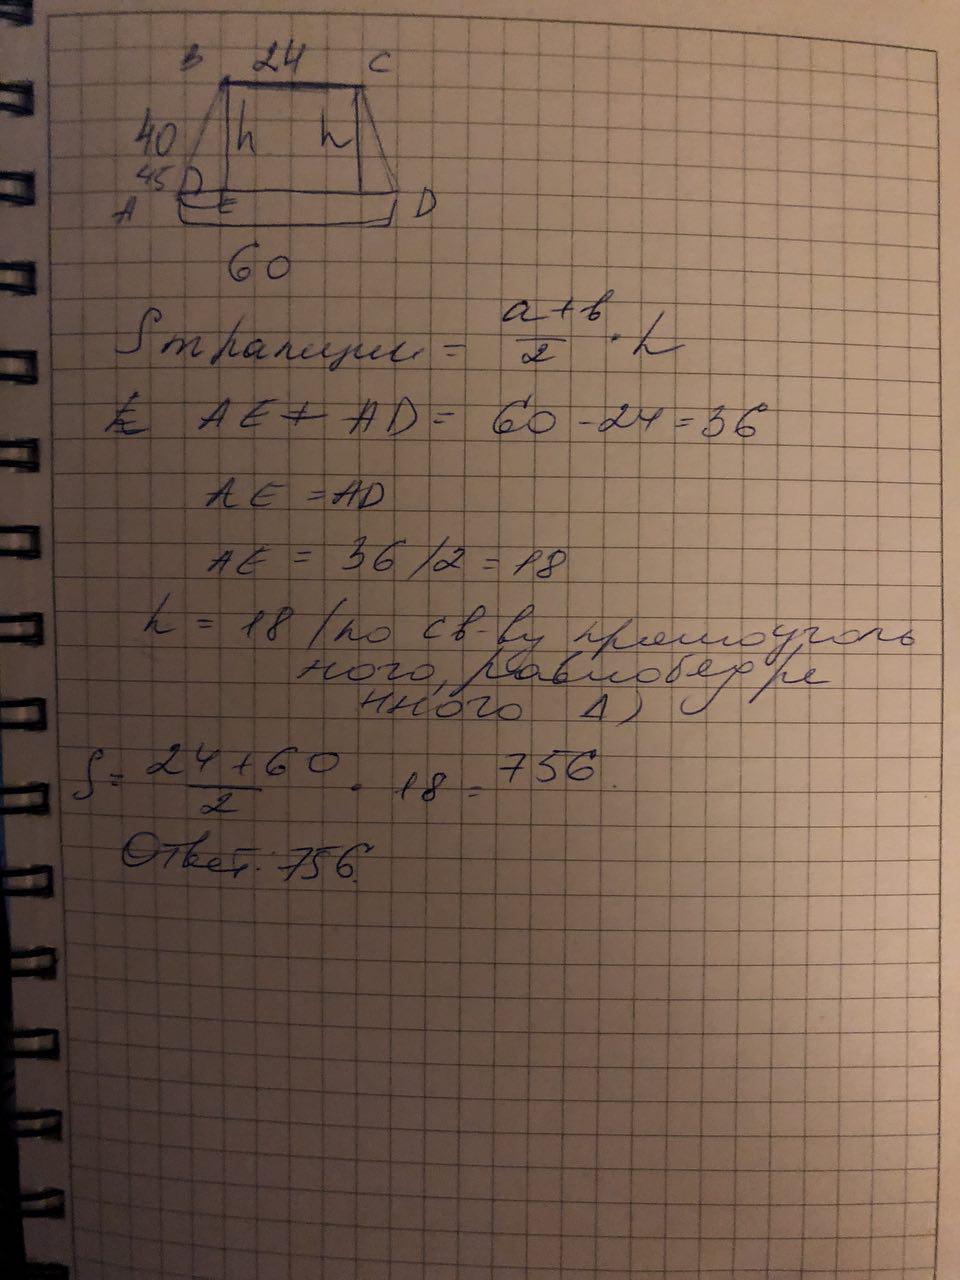 B 24 C
40 h h
45
A E D
60
S трапеции = a+b/2 · h
AE + AD = 60 - 24 = 36
AE = AD
AE = 36/2 = 18
h = 18 (по св-ву прямоуголь
ного, равнобедре
нного Δ)
S = 24+60/2 · 18 = 756.
Ответ: 756.